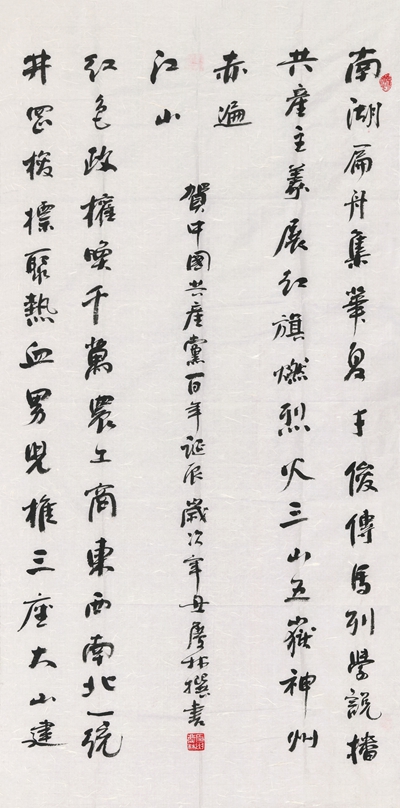 南湖扁舟集華夏才俊傳馬列學說播
共產主義展红旗燃烈火三山五嶽神州
赤遍
井岡梭標聚熱血男兒推三座大山建
红色政權喚千萬農工商東西南北一統
江山
賀中國共產黨百年誕辰歲次辛丑慶林撰書